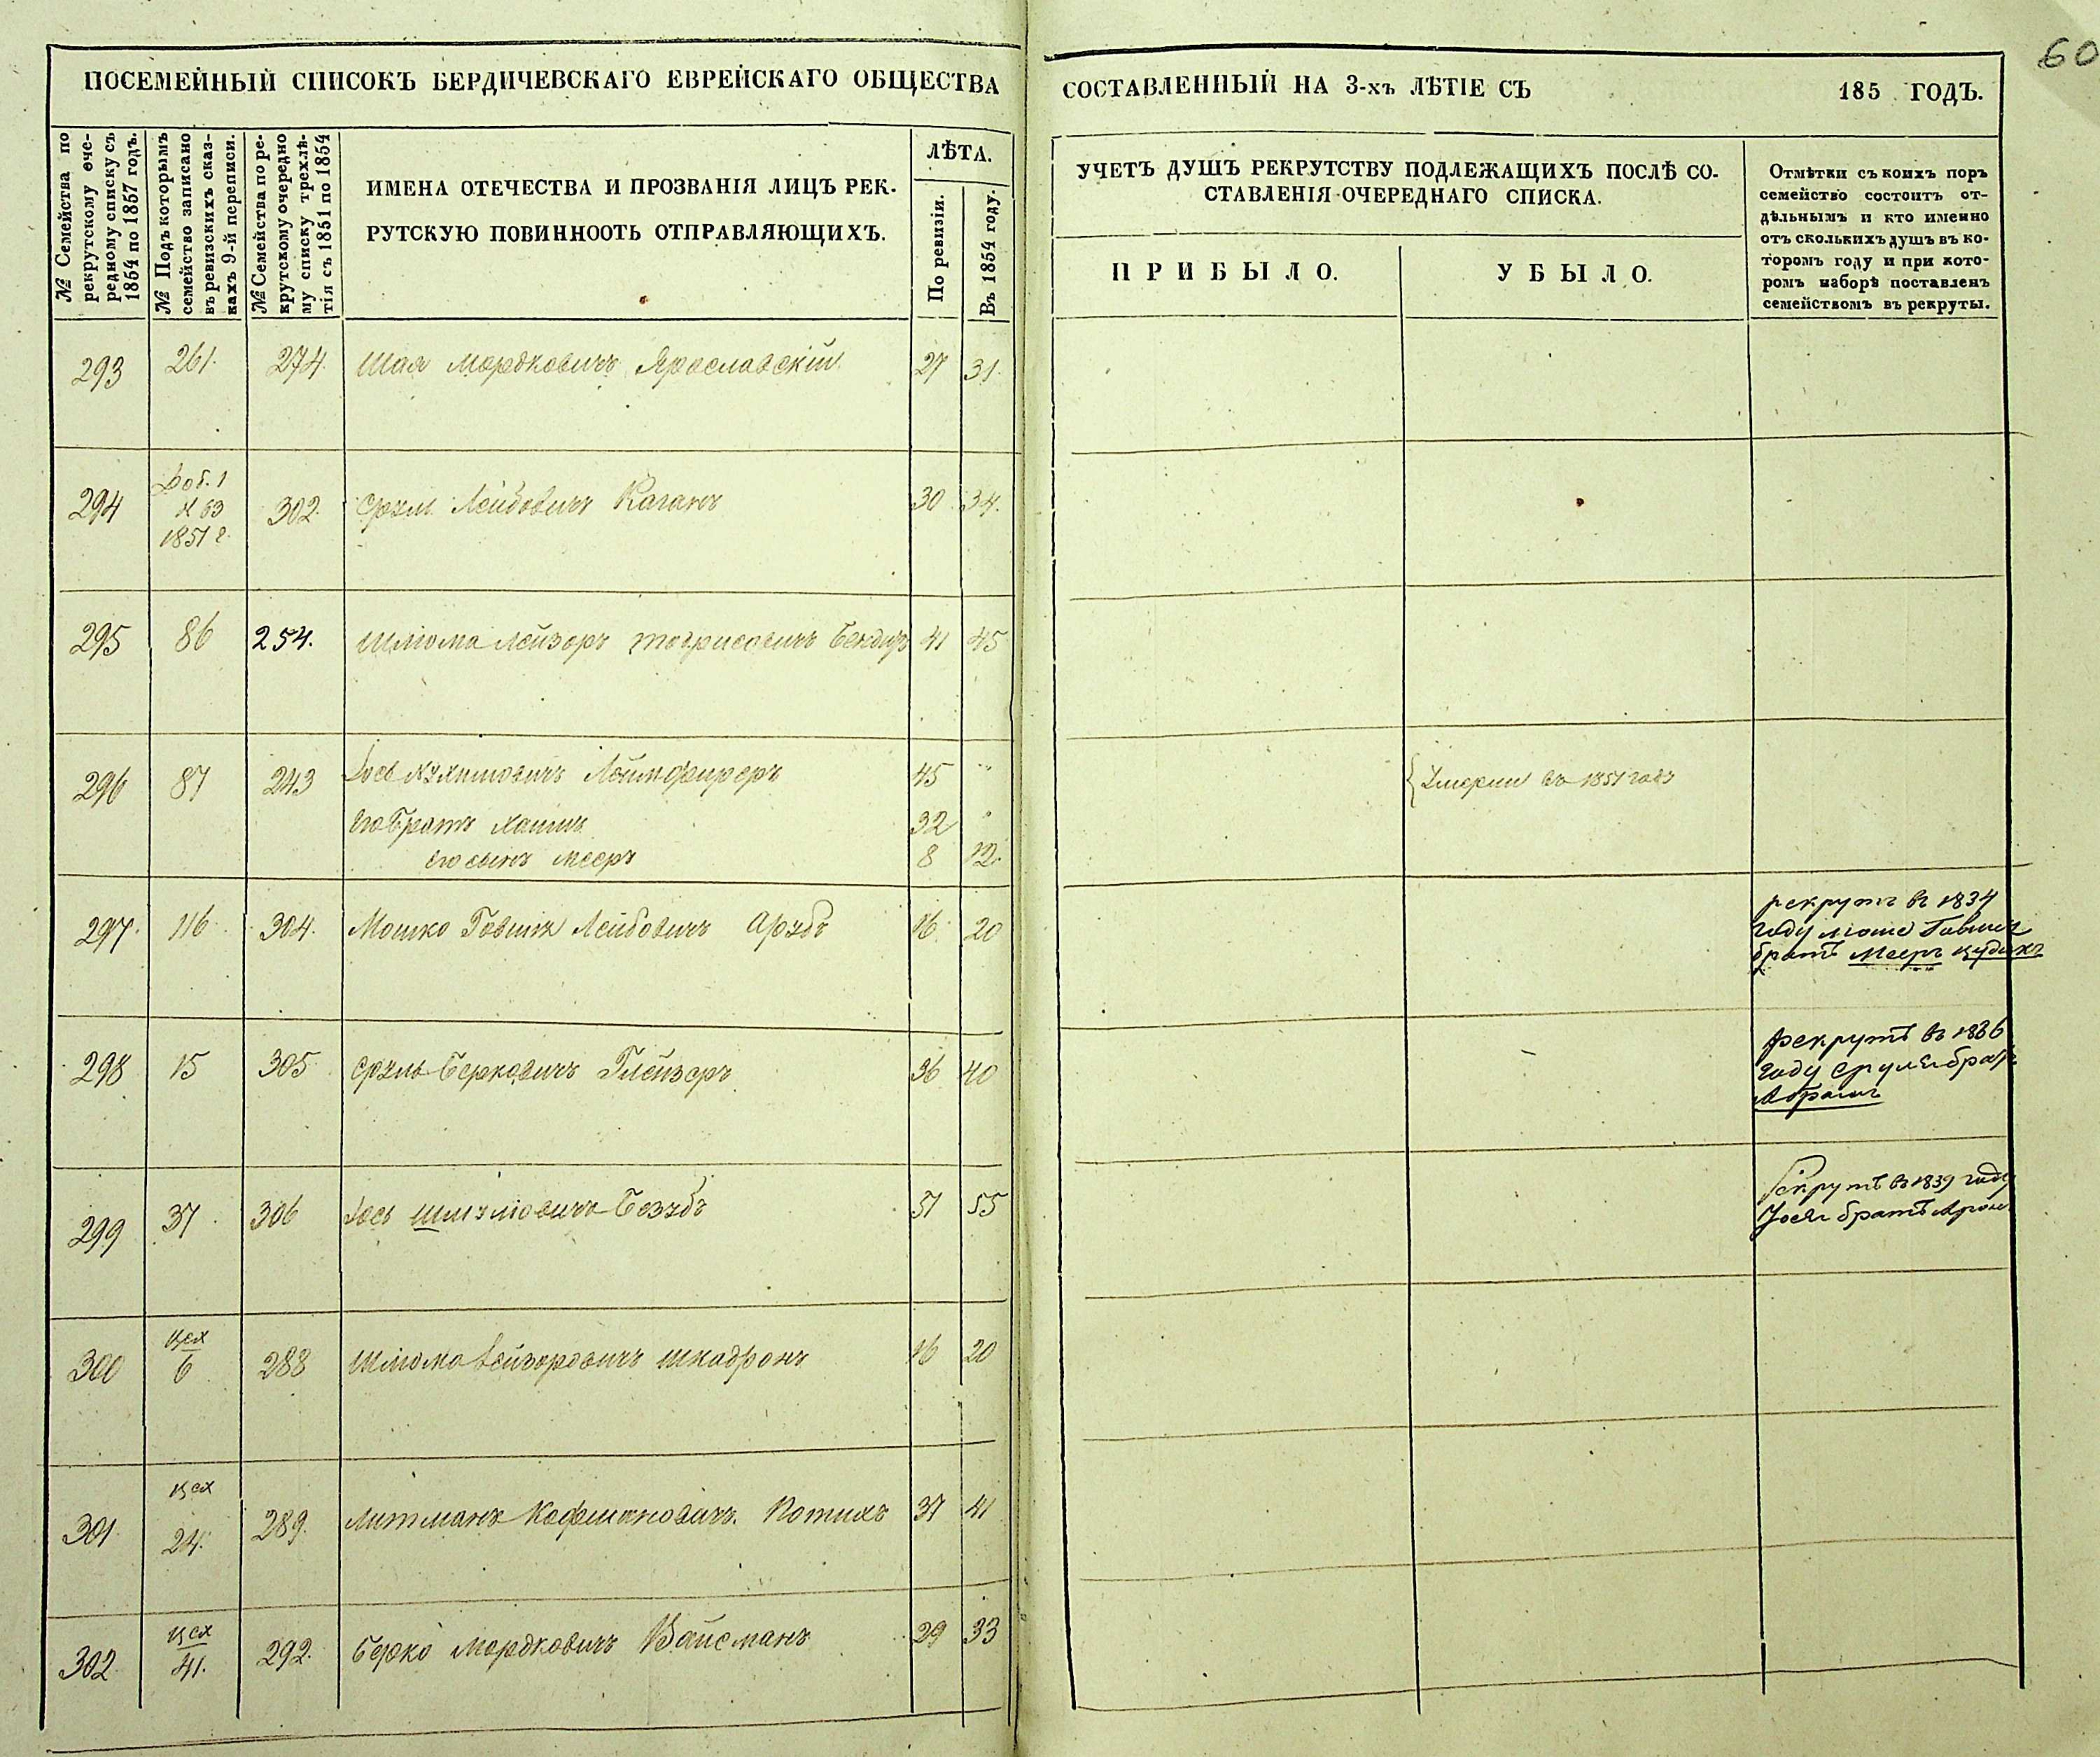 60
ПОСЕМЕЙНЫЙ СПИСОКЪ БЕРДИЧЕВСКАГО ЕВРЕЙСКАГО ОБЩЕСТВА
СОСТАВЛЕННЫЙ НА 3-хъ ЛѢТІЕ СЪ 185 ГОДЪ.
№ Семейства по
рекрутскому оче-
редному списку съ
1854 по 1857 годъ.
№ Подъ которымъ
семейство записано
въ ревизскихъ сказ-
кахъ 9-й переписи.
№ Семейства по ре-
крутскому очередно
му списку трехлѣ-
тія съ 1851 по 1854
ИМЕНА ОТЕЧЕСТВА И ПРОЗВАНІЯ ЛИЦЪ РЕК-
РУТСКУЮ ПОВИННООТЬ ОТПРАВЛЯЮЩИХЪ.
ЛѢТА.
По ревизіи.
Въ 1854 году.
УЧЕТЪ ДУШЪ РЕКРУТСТВУ ПОДЛЕЖАЩИХЪ ПОСЛѢ СО-
СТАВЛЕНІЯ ОЧЕРЕДНАГО СПИСКА.
ПРИБЫЛО.
УБЫЛО.
Отмѣтки съ коихъ поръ
семейство состоитъ от-
дѣльнымъ и кто именно
отъ сколькихъ душъ въ ко-
торомъ году и при кото-
ромъ наборѣ поставленъ
семействомъ въ рекруты.
293 261. 274. Шая Мордковичъ Ярославскій 27 31.
Доб. 1
294 № 63 302 Срулъ Лейбовичъ Каганъ 30 34.
1851 г.
295 86 254. Шліома Лейзоръ Бендеръ 41 45
296 87 243 Іось Леймферъ 45 "
{ Умерли въ 1851 году
его братъ Хаимъ 32 "
его сынъ Мееръ 8 12.
297. 116 304. Мошко Говшія Лейбовичъ 16 20
рекрутъ въ 1834
году
братъ Мееръ
298 15 305 Срулъ Берковичъ Глейзеръ 36 40
Рекрутъ въ 1836
году Сруля братъ
Абрамъ
299 37. 306 Іось Шмулювичъ Беззубъ 51 55
Рекрутъ въ 1839 году
Іося братъ Аронъ
300 цех 6 288 Шліома Лейзоровичъ Шкадронъ 16 20
301 цех 24. 289. Литманъ Кофмановичъ Котикъ 37 41
302 цех 41. 292. Берко Мордковичъ Вайсманъ 29 33